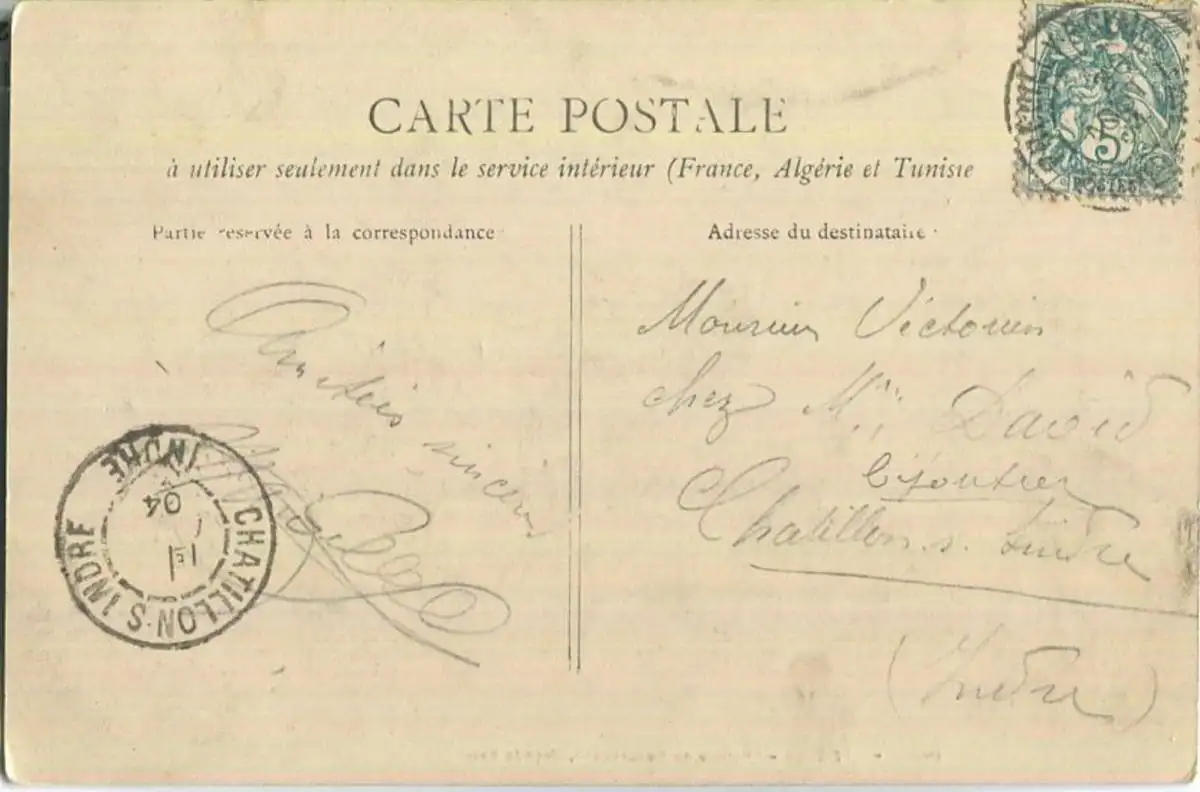 CARTE POSTALE
à utiliser seulement dans le service intérieur (France, Algérie et Tunisie
Partie réservée à la correspondance
Adresse du destinataire
5
POSTES
Amitiés sincères
Monsieur Victorien
chez Mr David
bijoutier
Chatillon. s. Indre
(Indre)
CHATILLON-S-INDRE
INDRE
04